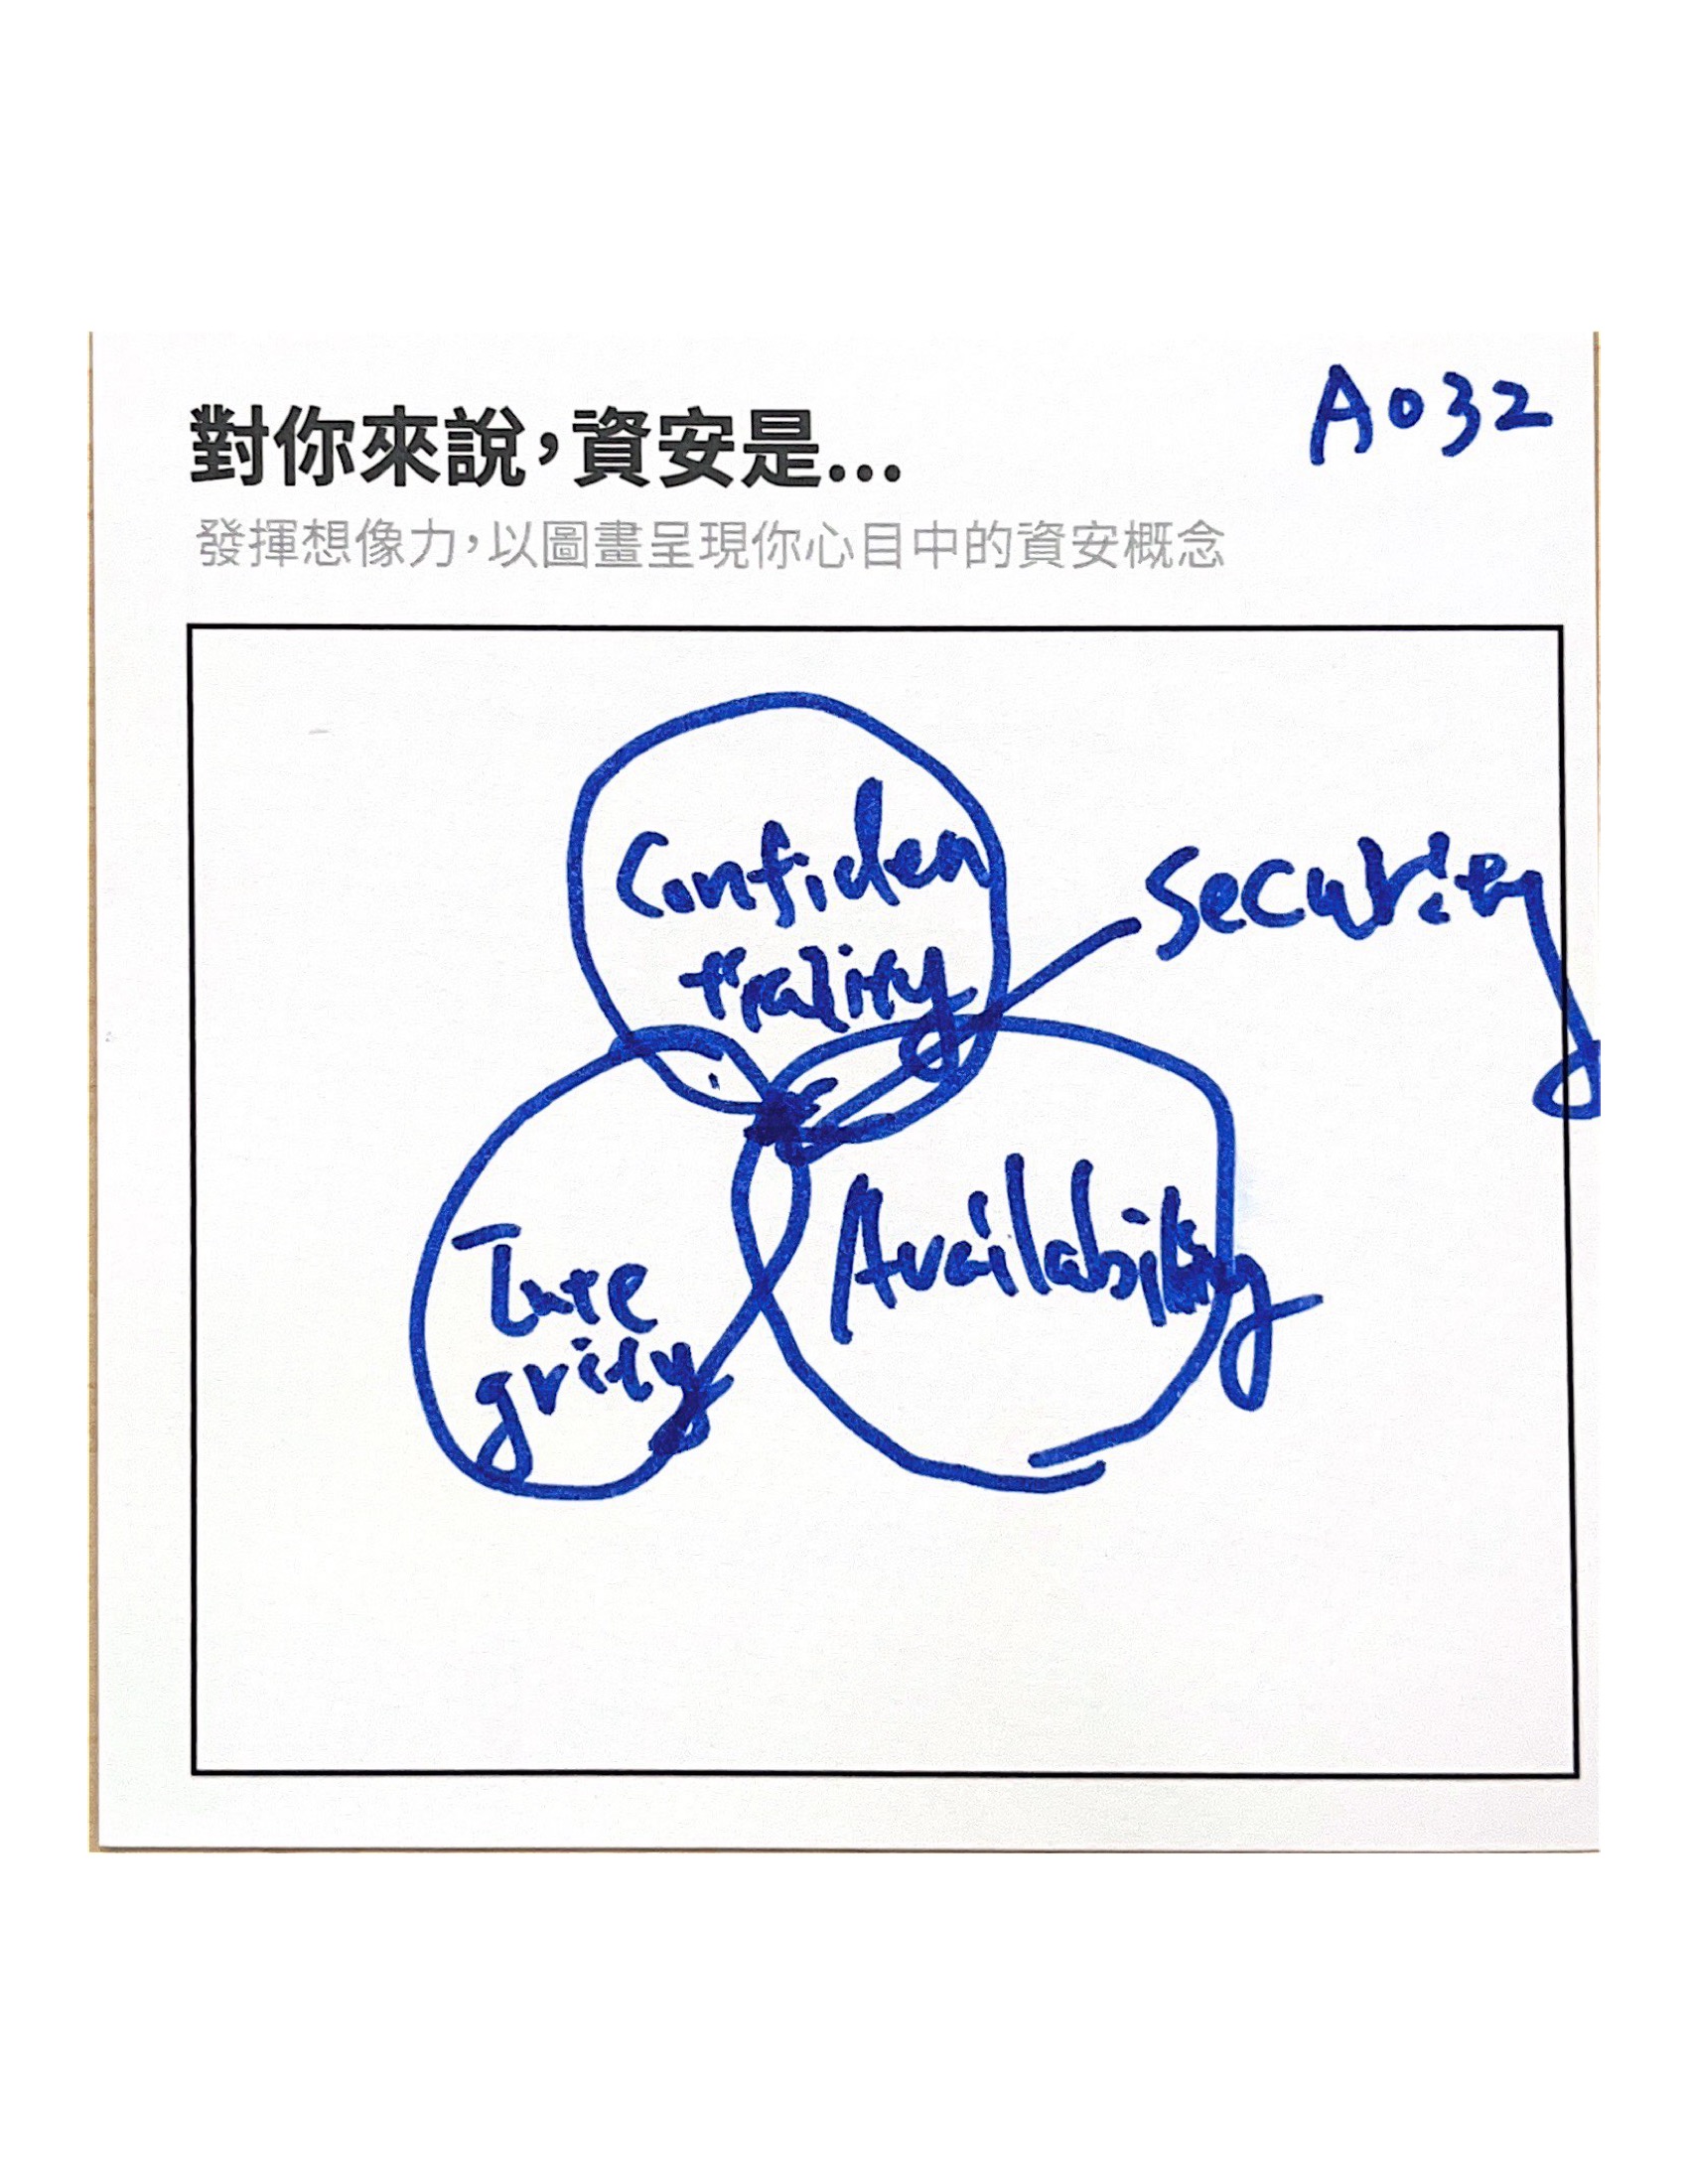 A032
對你來說，資安是...
發揮想像力，以圖畫呈現你心目中的資安概念
Confiden
tiality
Security
Inte
grity
Availability